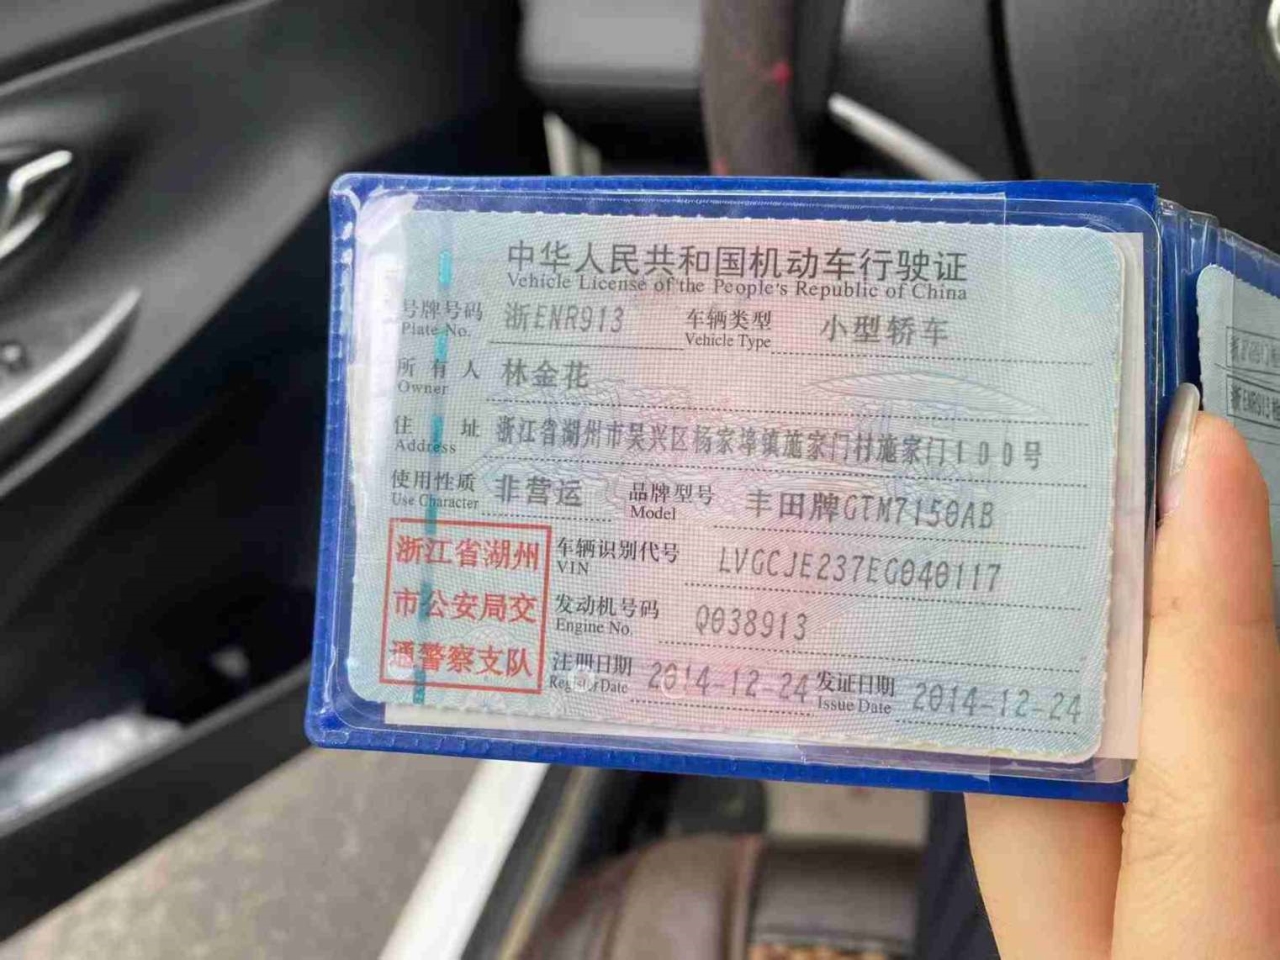 中华人民共和国机动车行驶证
Vehicle License of the People's Republic of China
号牌号码 浙ENR913 车辆类型 小型轿车
Plate No. Vehicle Type
所有人 林金花
Owner
住址 浙江省湖州市吴兴区杨家埠镇施家门村施家门100号
Address
使用性质 非营运 品牌型号 丰田牌GTM7150AB
Use Character Model
浙江省湖州
市公安局交
通警察支队
车辆识别代号 LVGCJE237EG040117
VIN
发动机号码 Q038913
Engine No.
注册日期 2014-12-24 发证日期 2014-12-24
Register Date Issue Date